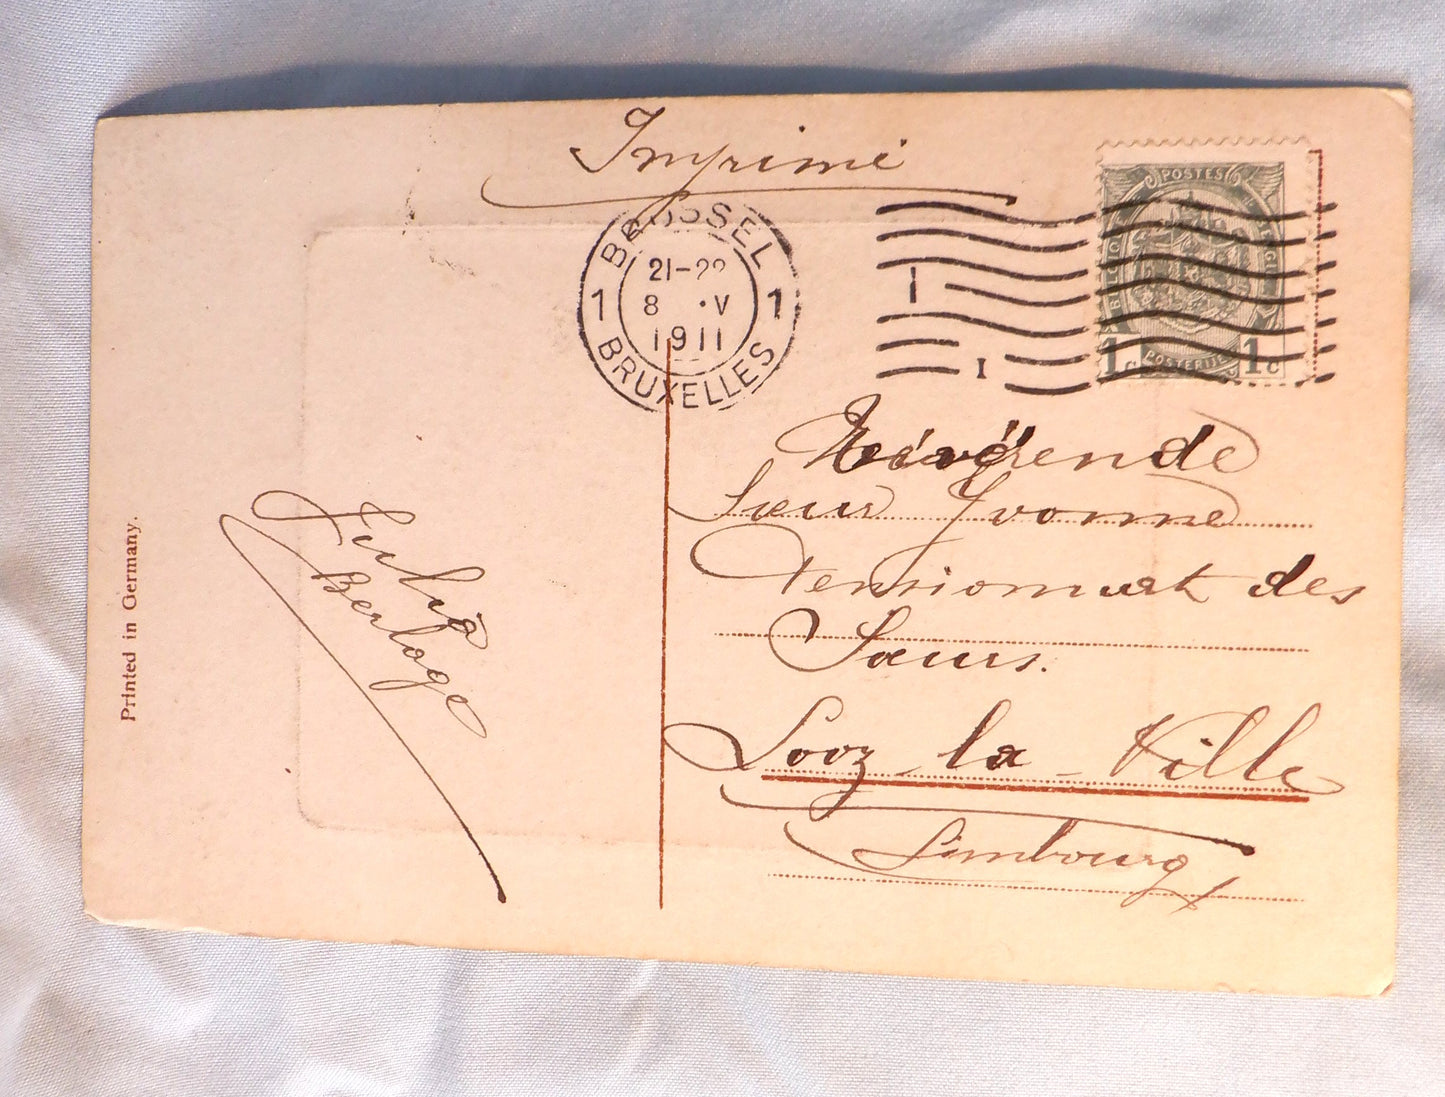 Imprimé
BRUSSEL
21-22
1 8 .V 1
1911
BRUXELLES
I
I
POSTES
BELGIQUE
BELGIE
1c POSTERIJEN 1c
Révérende
Sœur Yvonne
Pensionnat des
Sœurs.
Looz-la-Ville
Limbourg
Julia
Berlage
Printed in Germany.